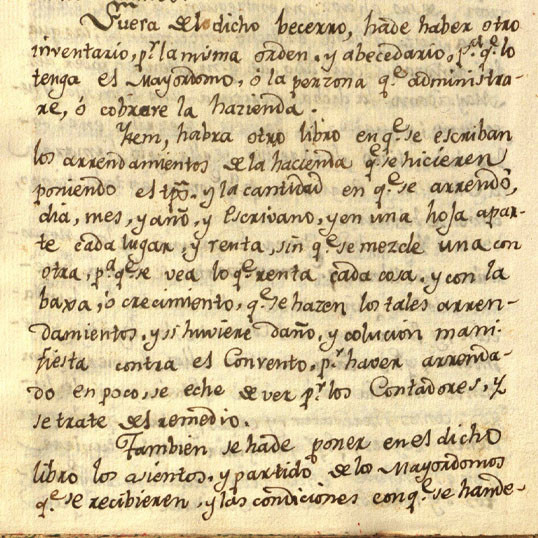 Fuera del dicho becerro, hade haber otro
inventario, pr. la misma orden, y abecedario, pa. qe. lo
tenga el Mayordomo, ó la perzona qe. administra-
re, ó cobrare la hazienda.
Ytem, habra otro libro en qe. se escriban
los arrendamientos de la hacienda qe. se hicieren
poniendo el tpo. y la cantidad en qe. se arrendó,
dia, mes, y año, y Escrivano, y en una hoja apar-
te cada lugar, y renta, sin qe. se mezcle una con
otra, pa. qe. se vea lo qe. renta cada cosa, y con la
baxa, ó crecimiento, qe. se hazen los tales arren-
damientos, y si huviere daño, y colucion mani-
fiesta contra el Convento, pr. haver arrenda-
do en poco, se eche de ver pr. los Contadores, y
se trate del remedio.
Tambien se hade poner en el dicho
libro los asientos, y partido de los Mayordomos
qe. se recibieren, y las condiciones con qe. se hande-